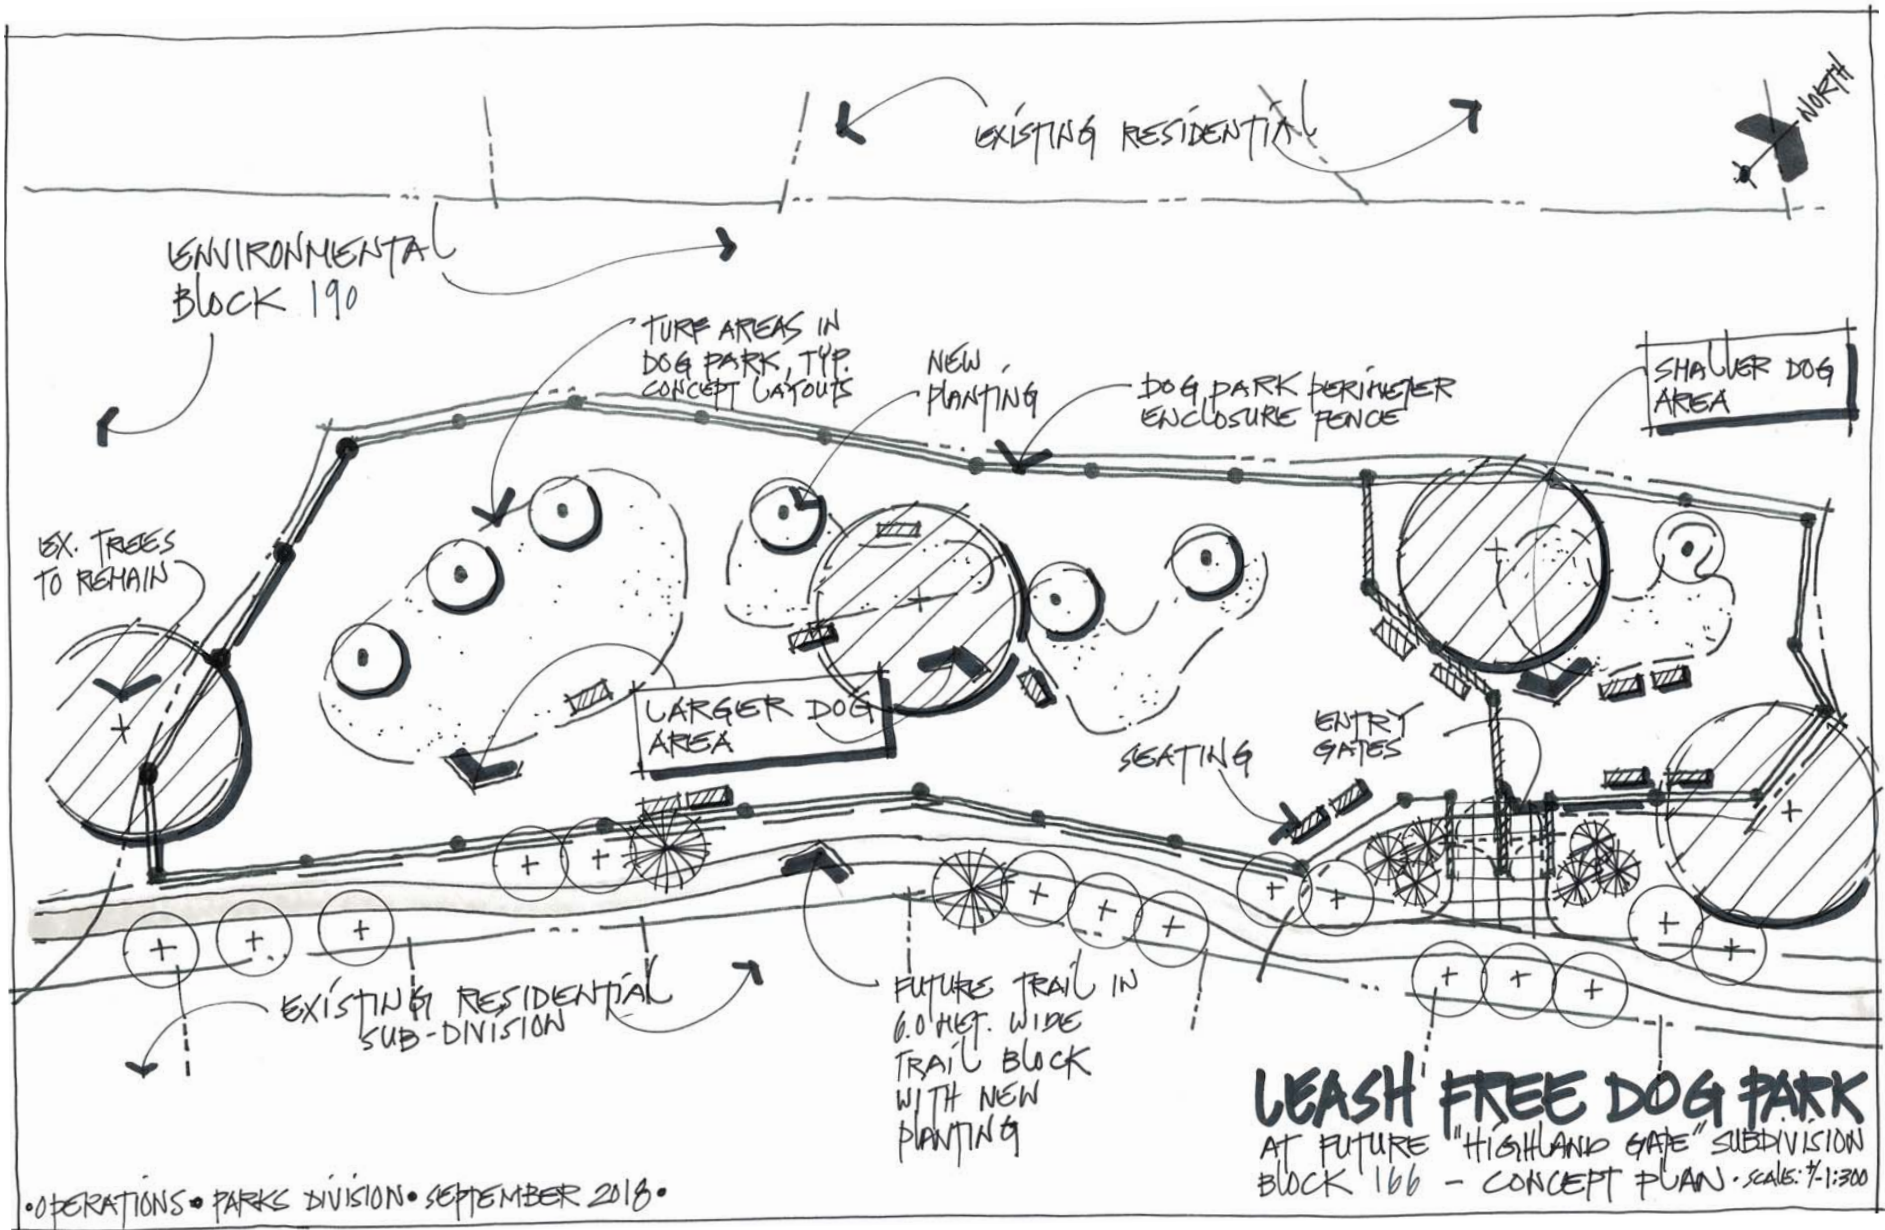 EXISTING RESIDENTIAL
NORTH
ENVIRONMENTAL
BLOCK 190
TURF AREAS IN
DOG PARK, TYP.
CONCEPT LAYOUTS
NEW
PLANTING
DOG PARK PERIMETER
ENCLOSURE FENCE
SMALLER DOG
AREA
EX. TREES
TO REMAIN
LARGER DOG
AREA
SEATING
ENTRY
GATES
EXISTING RESIDENTIAL
SUB-DIVISION
FUTURE TRAIL IN
6.0 MET. WIDE
TRAIL BLOCK
WITH NEW
PLANTING
LEASH FREE DOG PARK
AT FUTURE "HIGHLAND GATE" SUBDIVISION
BLOCK 166 - CONCEPT PLAN · SCALE: +/-1:300
·OPERATIONS·PARKS DIVISION·SEPTEMBER 2018·